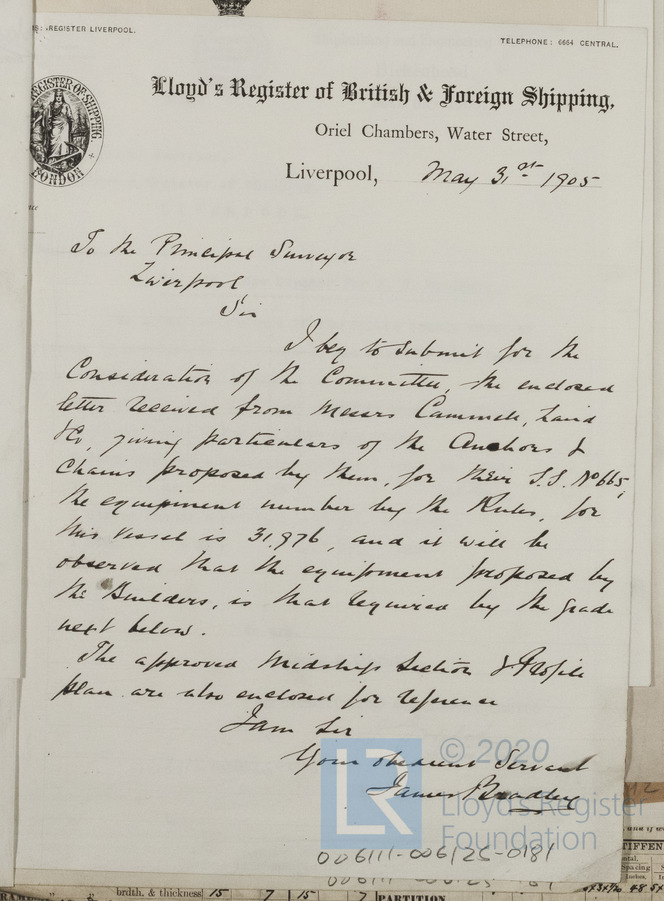 REGISTER LIVERPOOL.
TELEPHONE: 6664 CENTRAL.
Lloyd's Register of British & Foreign Shipping,
REGISTER OF SHIPPING
LONDON
Oriel Chambers, Water Street,
Liverpool, May 31st 1905
To the Principal Surveyor
Liverpool
Sir
I beg to submit for the
Consideration of the Committee, the enclosed
letter received from Messrs Cammell, Laird
& Co, giving particulars of the Anchors &
Chains proposed by them, for their S.S. No 665,
the equipment number by the Rules, for
this vessel is 31,976, and it will be
observed that the equipment proposed by
the Builders, is that required by the grade
next below.
The approved Midship Section & Profile
plan are also enclosed for reference
I am Sir
Your obedient Servant
James Bradley
LR © 2020
Lloyd's Register
Foundation
006111-006125-0181
brdth. & thickness 15 7 15 7 PARTITION
TIFFEN
Spacing
Inches.